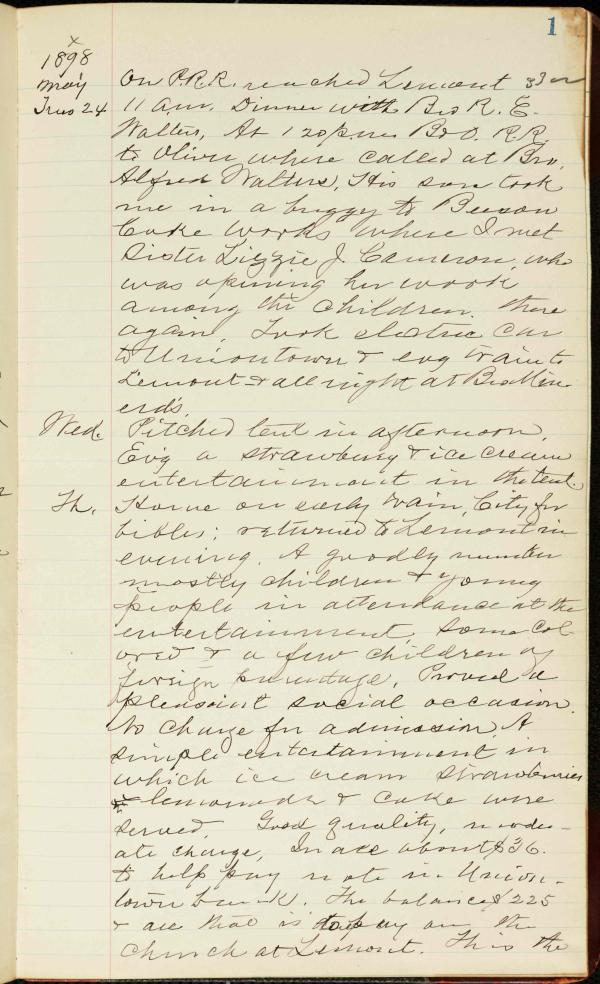 1
x
1898
May
Tues 24
On P.R.R. reached Lemont
11 a.m. Dinner with Bro R. E.
Walters, At 1 20 p.m. B & O. R.R.
to Oliver where called at Bro.
Alfred Walters, His son took
me in a buggy to Beeson
Coke works where I met
Sister Lizzie J. Cameron, who
was opening her work
among the children. there
again. Took electric car
to Uniontown & evg train to
Lemont & all night at Bro Min-
erd's.
Wed. Pitched tent in afternoon.
Ev'g a strawberry & ice cream
entertainment in the tent.
Th. Home on early train, City for
bibles; returned to Lemont in
evening. A goodly number
mostly children & young
people in attendance at the
entertainment, some col-
ored & a few children of
foreign parentage. Proved a
pleasant social occasion.
No charge for admission. A
simple entertainment in
which ice cream strawberries
lemonade & cake were
served. Good quality, moder-
ate charge, In all about $36.
to help pay note in Union-
town bank. The balance $225
& all that is to pay on the
church at Lemont. This the